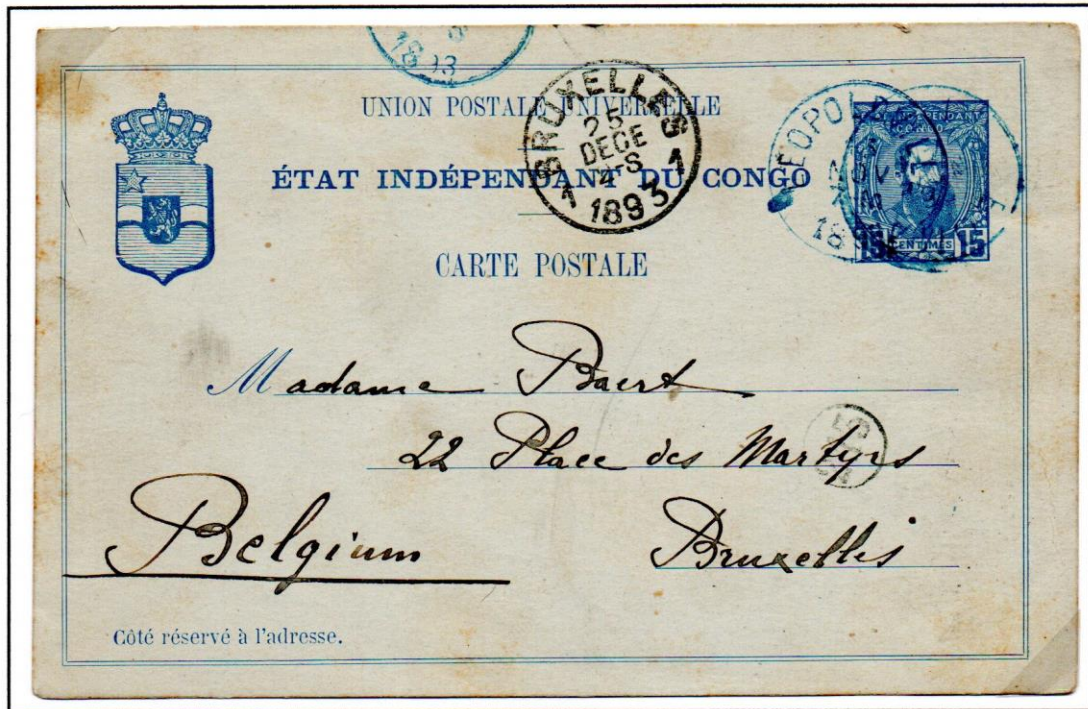 1893
UNION POSTALE UNIVERSELLE
ÉTAT INDÉPENDANT DU CONGO
CARTE POSTALE
BRUXELLES
25
DECE
4-S
1 1893 1
LEOPOLDVILLE
NOV
15 CENTIMES 15
Madame Baert
22 Place des Martyrs
Belgium
Bruxelles
Côté réservé à l'adresse.